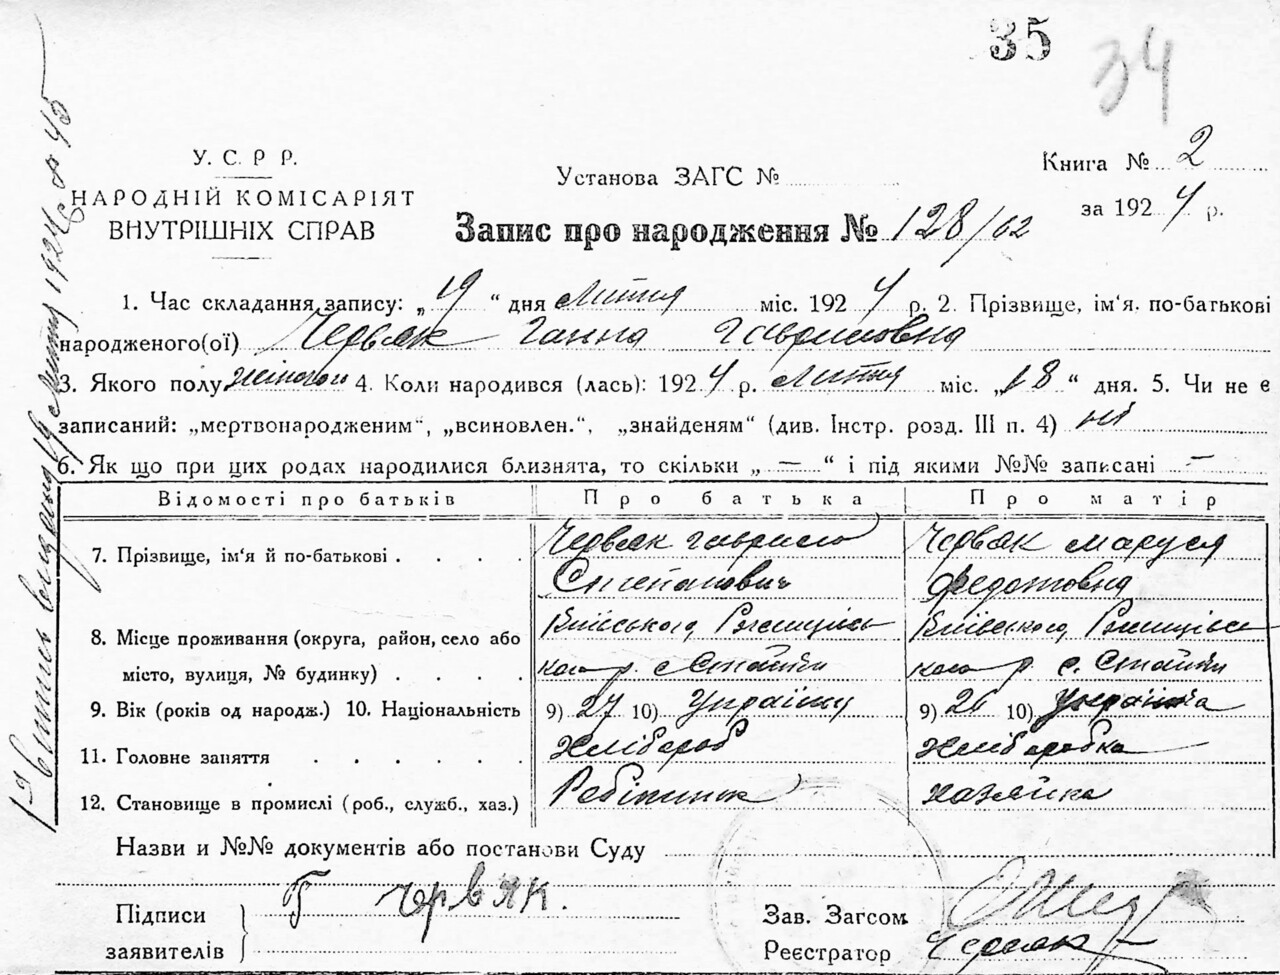 35
34
У. С. Р Р.
НАРОДНІЙ КОМІСАРІЯТ
ВНУТРІШНІХ СПРАВ
Установа ЗАГС №
Книга № 2
за 1924 р.
Запис про народження № 128/62
1. Час складання запису: „19“ дня Липня міс. 1924 р. 2. Прізвище, ім'я, по-батькові
народженого(ої) Червяк Ганна Гавриловна
3. Якого полу жіночого 4. Коли народився (лась): 1924 р. Липня міс. „18“ дня. 5. Чи не є
записаний: „мертвонародженим“, „всиновлен.“, „знайденям“ (див. Інстр. розд. III п. 4) ні
6. Як що при цих родах народилися близнята, то скільки „ — “ і під якими №№ записані —
Відомості про батьків Про батька Про матір
7. Прізвище, ім'я й по-батькові . . . . Червяк Гаврило Червяк Маруся
Степанович Федотовна
8. Місце проживання (округа, район, село або Київського, Ржищівсь Київського, Ржищівсь
місто, вулиця, № будинку) . . . . кого р. с Стайки кого р. с. Стайки
9. Вік (років од народж.) 10. Національність 9) 27 10) Українц 9) 26 10) Українка
11. Головне заняття . . . . . . Хлібороб Хліборобка
12. Становище в промислі (роб., служб., хаз.) Робітник хазяйка
Назви и №№ документів або постанови Суду
Підписи
заявителів
Г Чрвяк.
Зав. Загсом
Реєстратор Червяк
Липня 1924 р № 45